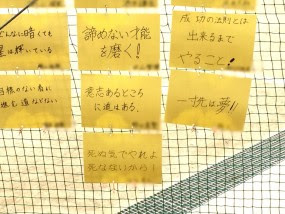 どんなに暗くても
星は輝いている
諦めない才能
を磨く!
成功の法則とは
出来るまで
やること!
目標のない者に
道などない
意志あるところ
に道はある、
は夢!!
死ぬ気でやれよ
死なないから!